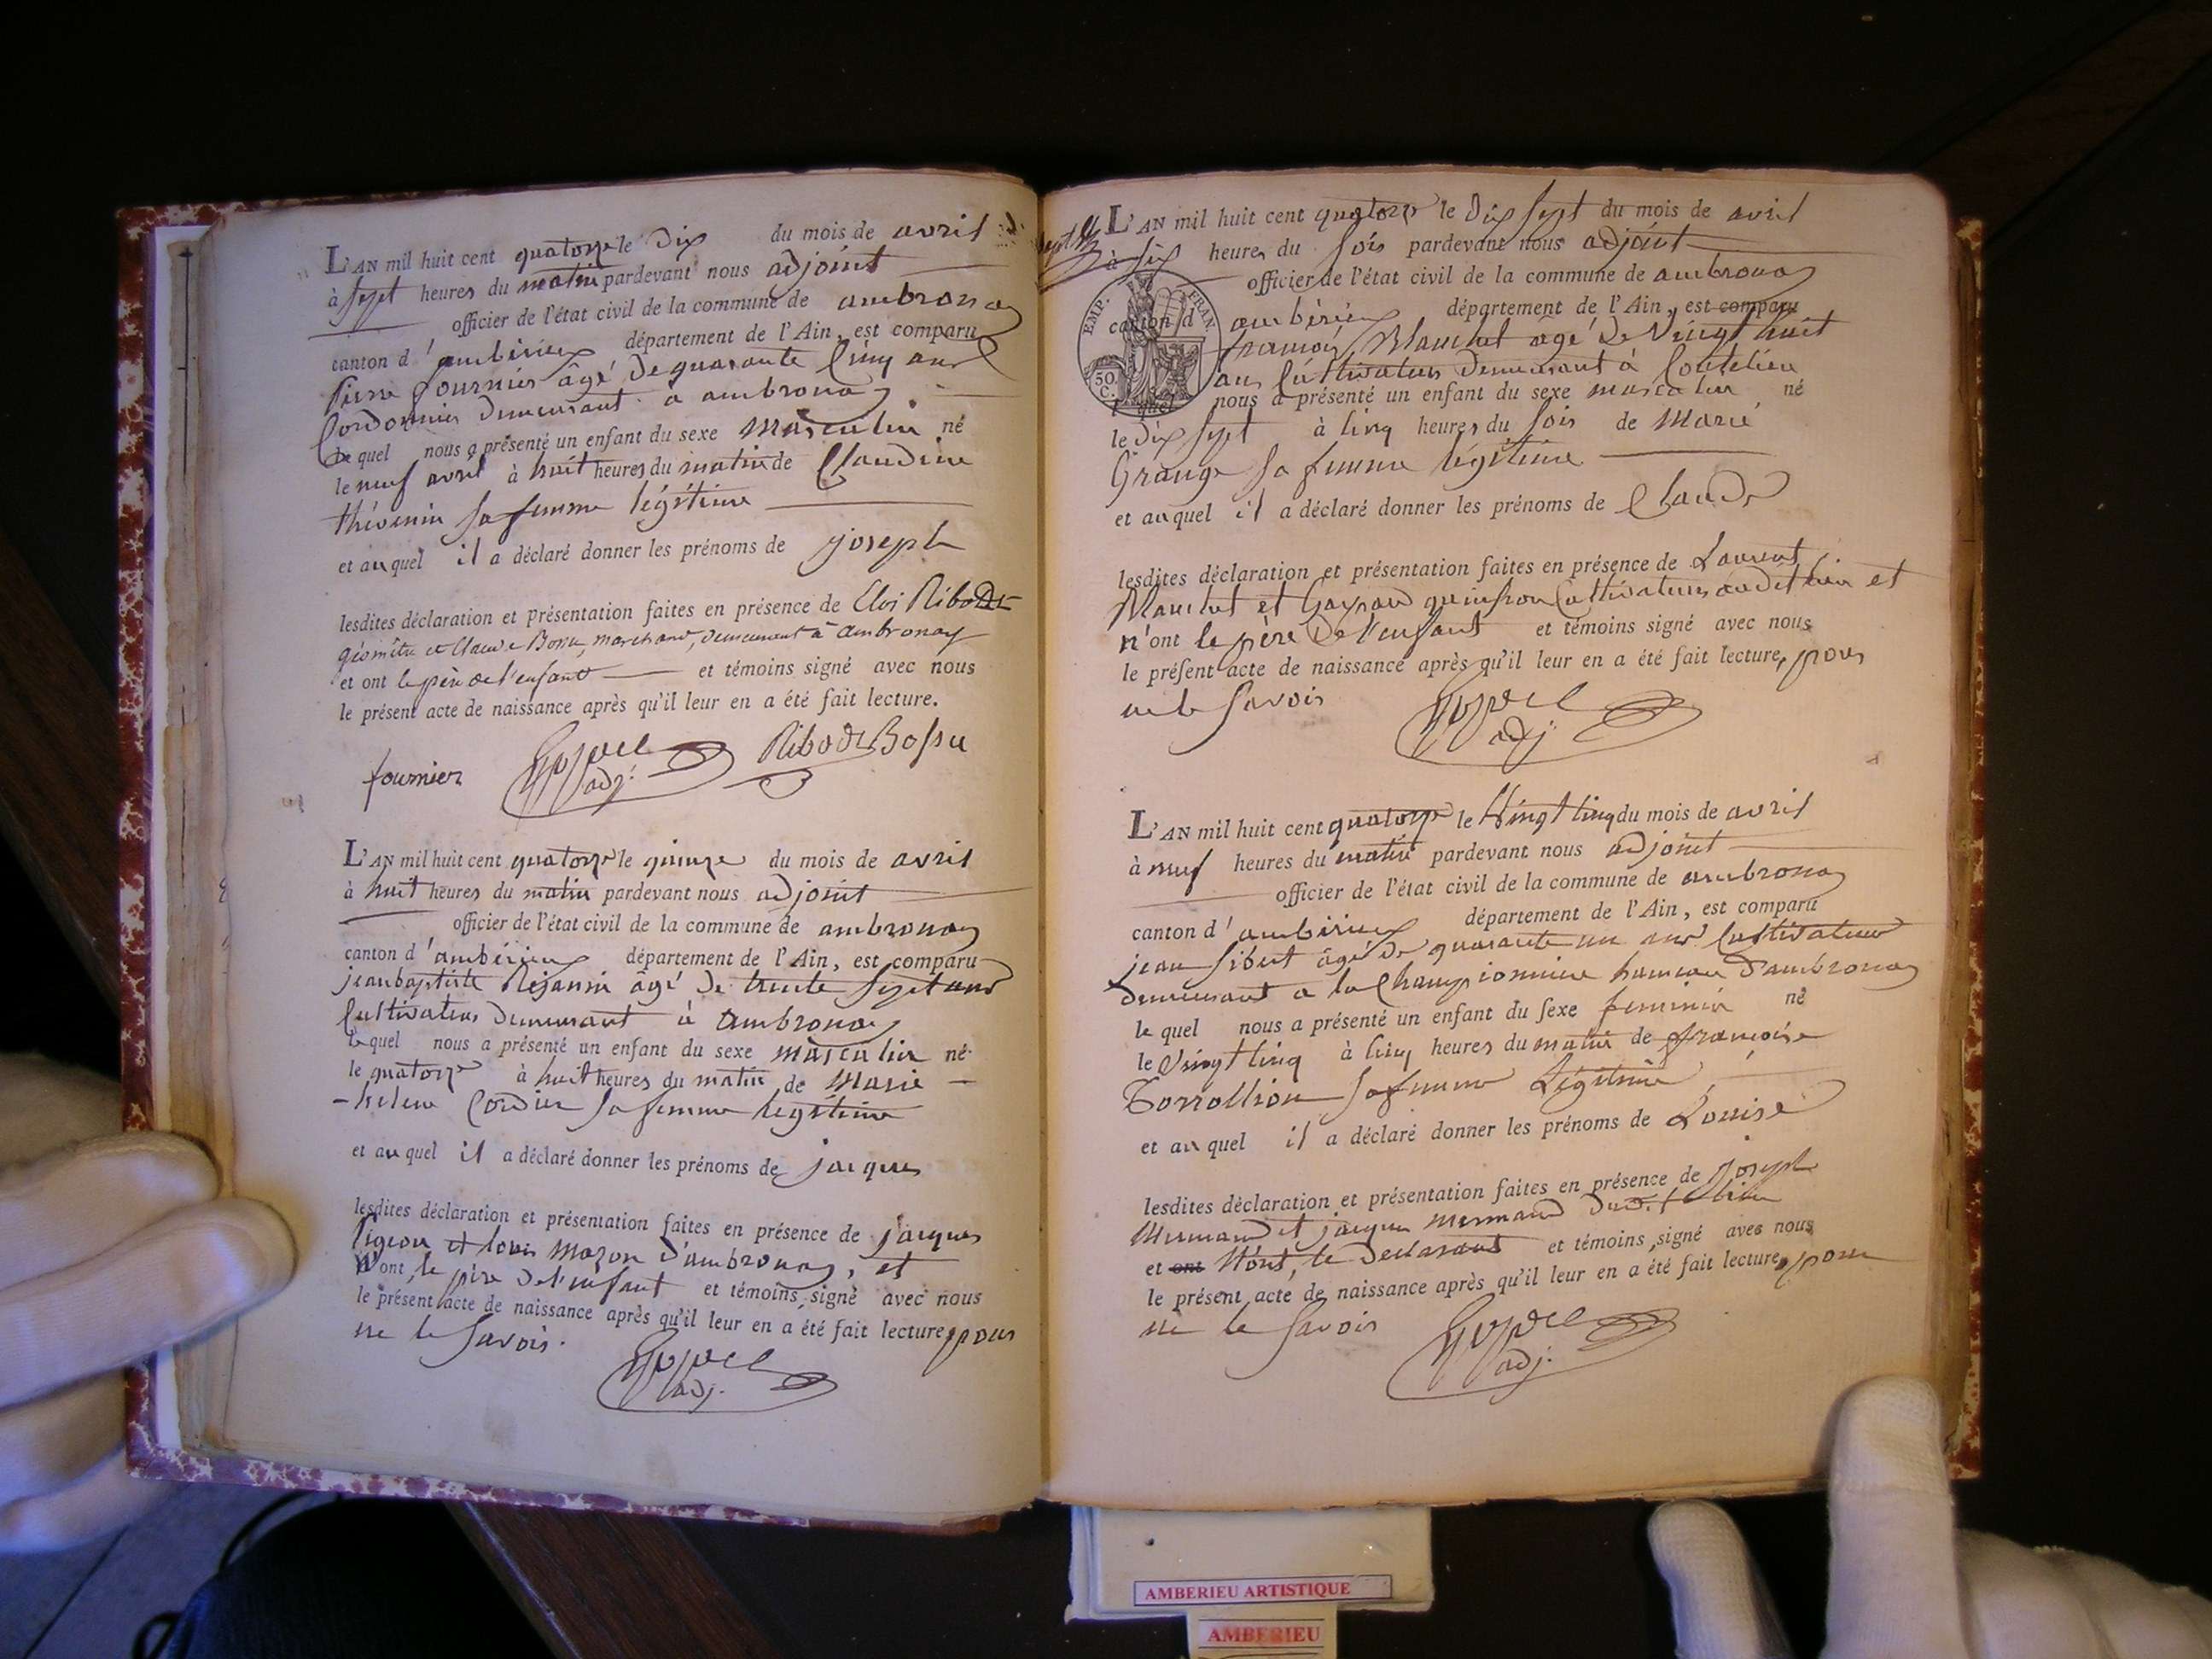 L'AN mil huit cent quatorze le Dix du mois de avril
à Sept heures du matin pardevant nous adjoint
officier de l'état civil de la commune de ambronay
canton d'ambérieux département de l'Ain, est comparu
pierre fournier âgé de quarante Cinq ans
Cordonnier demeurant à ambronay
Lequel nous a présenté un enfant du sexe masculin né
le neuf avril à huit heures du matin de Claudine
thévenin sa femme légitime
et auquel il a déclaré donner les prénoms de joseph
lesdites déclaration et présentation faites en présence de Eloi Ribodet
géomètre et Claude Bossu, marchand, demeurant à ambronay
et ont le père de l'enfant et témoins signé avec nous
le présent acte de naissance après qu'il leur en a été fait lecture.
fournier adj. Ribodet Bossu
L'AN mil huit cent quatorze le quinze du mois de avril
à huit heures du matin pardevant nous adjoint
officier de l'état civil de la commune de ambronay
canton d'ambérieux département de l'Ain, est comparu
jean baptiste âgé de trente Sept ans
Cultivateur demeurant à ambronay
Lequel nous a présenté un enfant du sexe masculin né
le quatorze à huit heures du matin de Marie
helene Cordier sa femme légitime
et auquel il a déclaré donner les prénoms de jacques
lesdites déclaration et présentation faites en présence de jacques
Pigeon et louis mazon d'ambronay, et
n'ont, le père de l'enfant et témoins, signé avec nous
le présent acte de naissance après qu'il leur en a été fait lecture, pour
ne le Savoir.
adj.
L'AN mil huit cent quatorze le Dix Sept du mois de avril
à Six heures du soir pardevant nous adjoint
officier de l'état civil de la commune de ambronay
EMP. FRAN.
30 C.
canton d'ambérieux département de l'Ain, est comparu
françois Manchet agé de Vingt huit
ans Cultivateur demeurant à
lequel nous a présenté un enfant du sexe masculin né
le Dix Sept à Cinq heures du soir de Marie
Grange sa femme légitime
et auquel il a déclaré donner les prénoms de Claude
lesdites déclaration et présentation faites en présence de Laurent
Manchet et Gaspard Cultivateurs audit lieu et
n'ont le père de l'enfant et témoins signé avec nous
le présent acte de naissance après qu'il leur en a été fait lecture, pour
ne le Savoir
adj.
L'AN mil huit cent quatorze le Vingt Cinq du mois de avril
à neuf heures du matin pardevant nous adjoint
officier de l'état civil de la commune de ambronay
canton d'ambérieux département de l'Ain, est comparu
jean Sibert âgé de quarante un ans Cultivateur
demeurant a la Championnière hameau d'ambronay
le quel nous a présenté un enfant du sexe feminin né
le Vingt Cinq à Cinq heures du matin de françoise
Torrollion sa femme Légitime
et auquel il a déclaré donner les prénoms de Louise
lesdites déclaration et présentation faites en présence de Joseph
Mermand et jacques mermand dudit lieu
et ont N'ont, le declarant et témoins, signé avec nous
le présent acte de naissance après qu'il leur en a été fait lecture, pour
ne le Savoir
adj.
AMBERIEU ARTISTIQUE
AMBERIEU